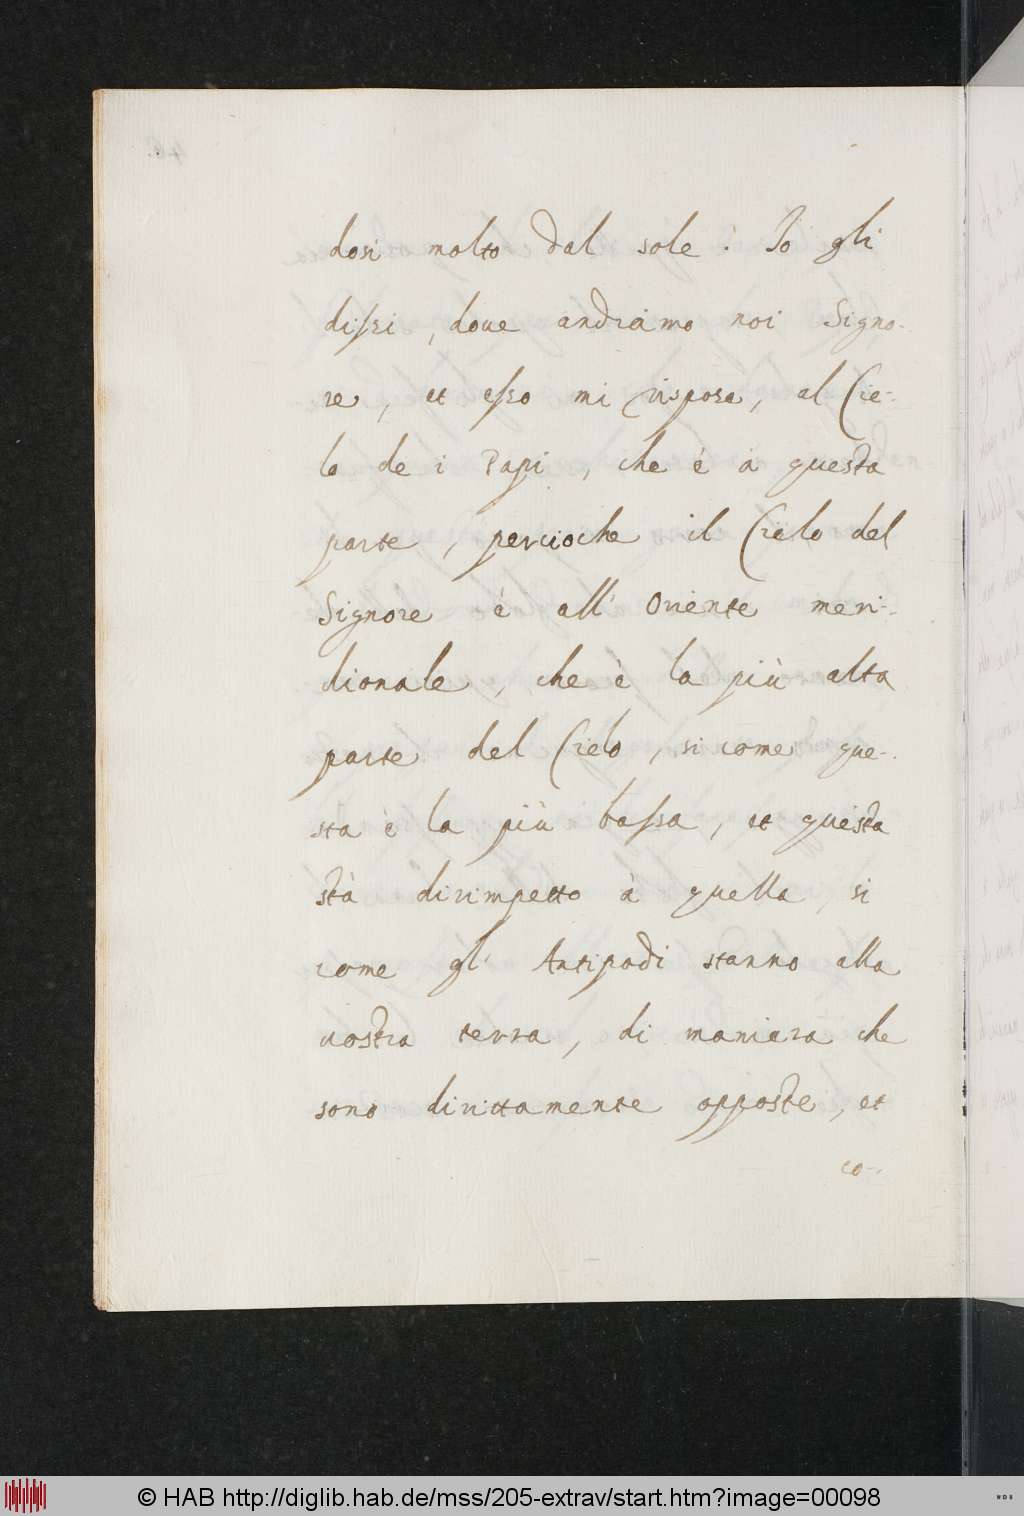 dosi molto dal sole. Io gli
dissi, doue andiamo noi Signo-
re, et esso mi rispose, al Cie-
lo de i Papi, che è à questa
parte, percioche il Cielo del
Signore è all' Oriente meri-
dionale, che è la più alta
parte del Cielo, si come que-
sta è la più bassa, et questa
stà dirimpetto à quella, si
come gl' Antipodi stanno alla
nostra terra, di maniera che
sono dirittamente opposte, et
co-
© HAB http://diglib.hab.de/mss/205-extrav/start.htm?image=00098